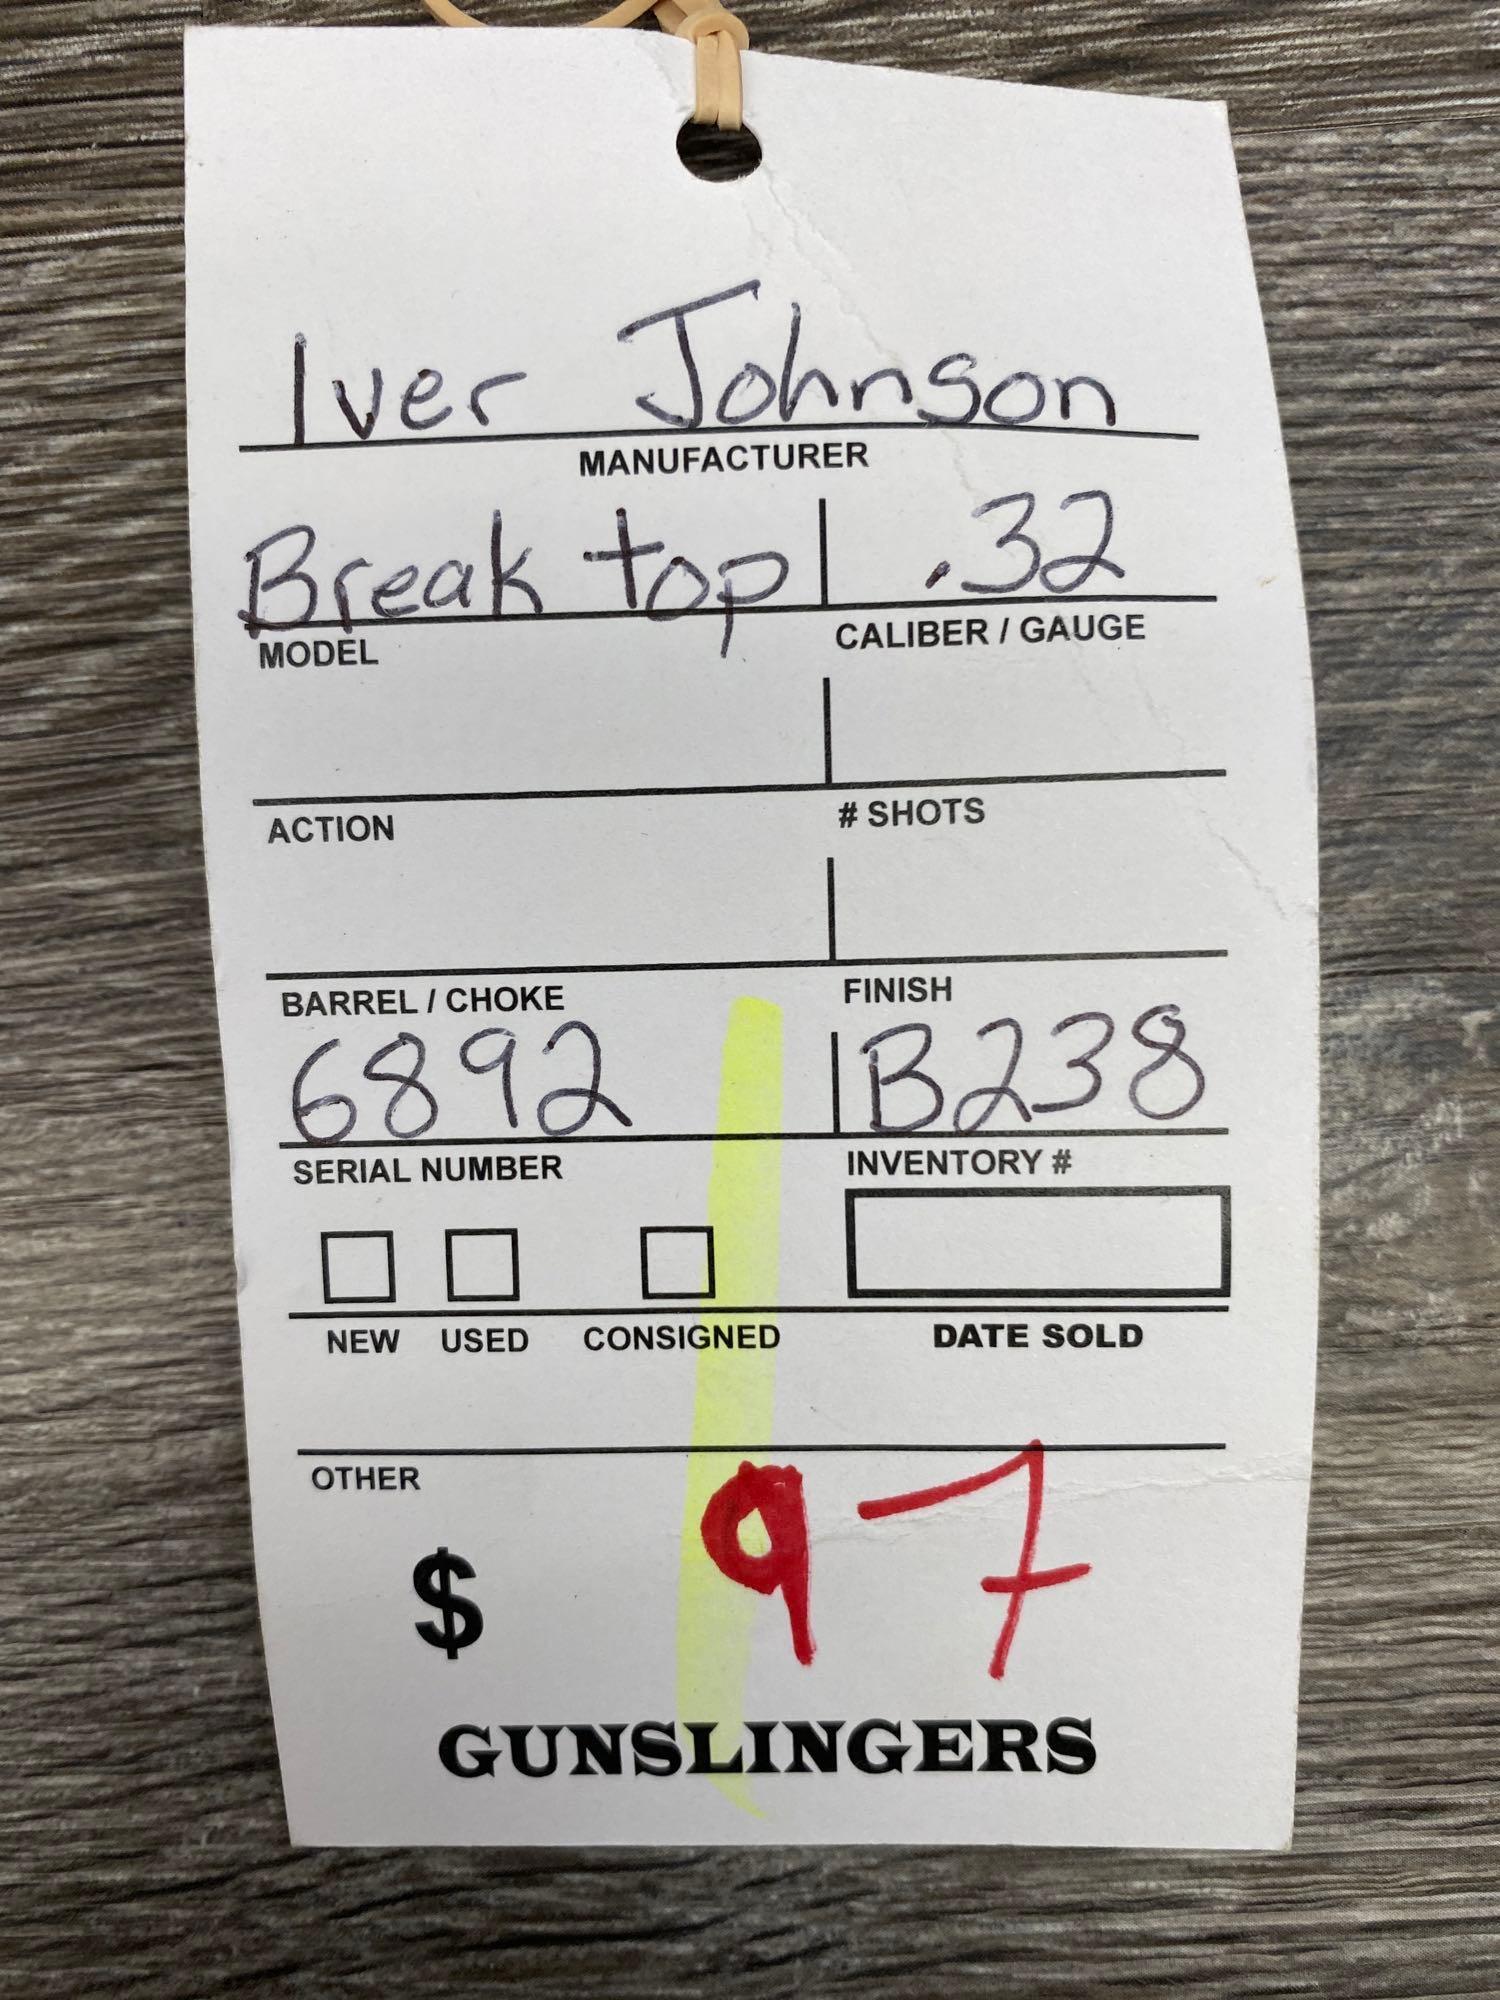 Iver Johnson
MANUFACTURER
Break top .32
MODEL CALIBER / GAUGE
ACTION # SHOTS
BARREL / CHOKE FINISH
6892 B238
SERIAL NUMBER INVENTORY #
NEW USED CONSIGNED DATE SOLD
OTHER
$ 97
GUNSLINGERS